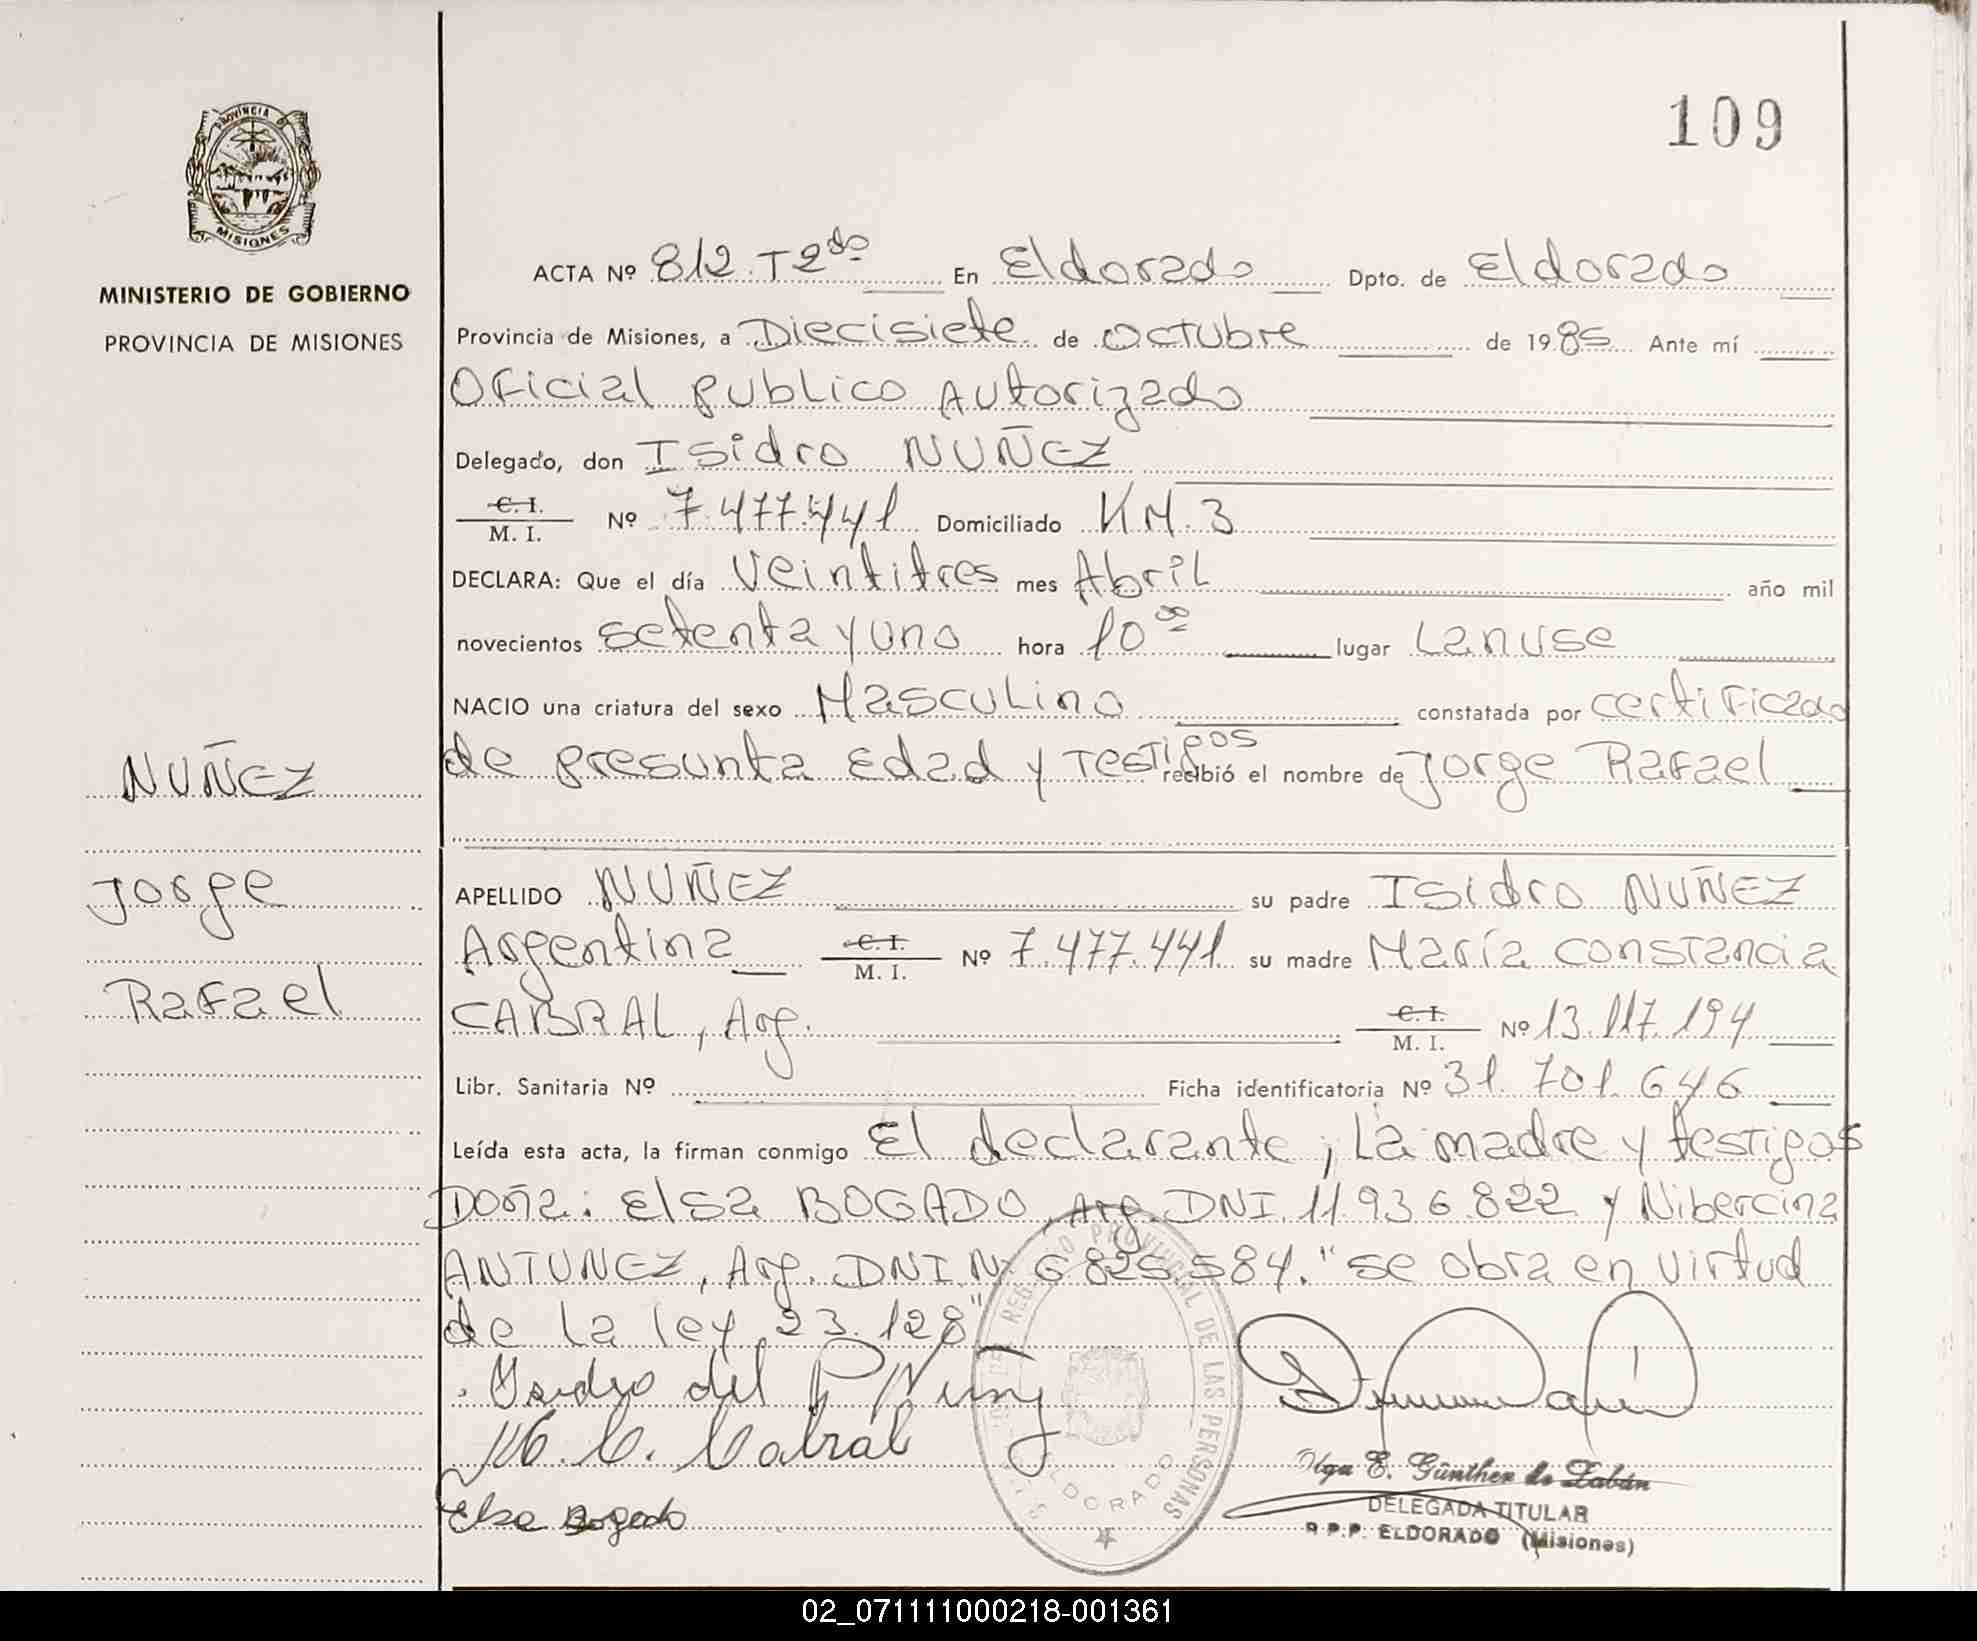 109
PROVINCIA DE
MISIONES
MINISTERIO DE GOBIERNO
PROVINCIA DE MISIONES
NUÑEZ
Jorge
Rafael
ACTA Nº 812 T2do En Eldorado Dpto. de Eldorado
Provincia de Misiones, a Diecisiete de Octubre de 1985 Ante mí
Oficial publico Autorizado
Delegado, don Isidro NUÑEZ
C. I.
M. I. Nº 7.477.441 Domiciliado KM.3
DECLARA: Que el día Veintitres mes Abril año mil
novecientos setenta y uno hora 10 00 lugar Lanuse
NACIO una criatura del sexo Masculino constatada por certificado
de presunta Edad y Testigos recibió el nombre de Jorge Rafael
APELLIDO NUÑEZ su padre Isidro NUÑEZ
Argentina C. I. M. I. Nº 7.477.441 su madre María Constancia
CABRAL, Arg. C. I. M. I. Nº 13.117.194
Libr. Sanitaria Nº Ficha identificatoria Nº 31.701.646
Leída esta acta, la firman conmigo El declarante, La madre y testigos
DOÑa: Elsa BOGADO, Arg. DNI. 11.936.822 y Nibercina
ANTUNEZ, Arg. DNI.Nº 6.825.584. "se obra en virtud
de la ley 23.128"
Isidro del Nuñez
M. C. Cabral
Elsa Bogado
REGISTRO PROVINCIAL DE LAS PERSONAS
ELDORADO
Olga E. Günther de Zabán
DELEGADA TITULAR
R.P.P. ELDORADO (Misiones)
02_071111000218-001361